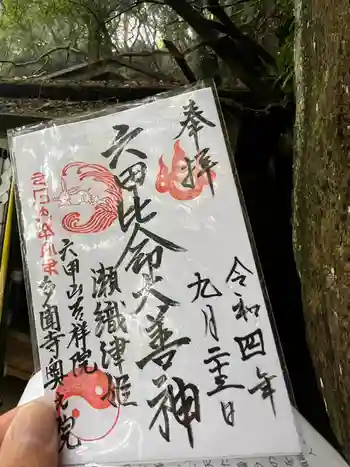 奉拝
令和四年
九月二十三日
六甲比命大善神
瀬織津姫
六甲山吉祥院
多聞寺奥之院